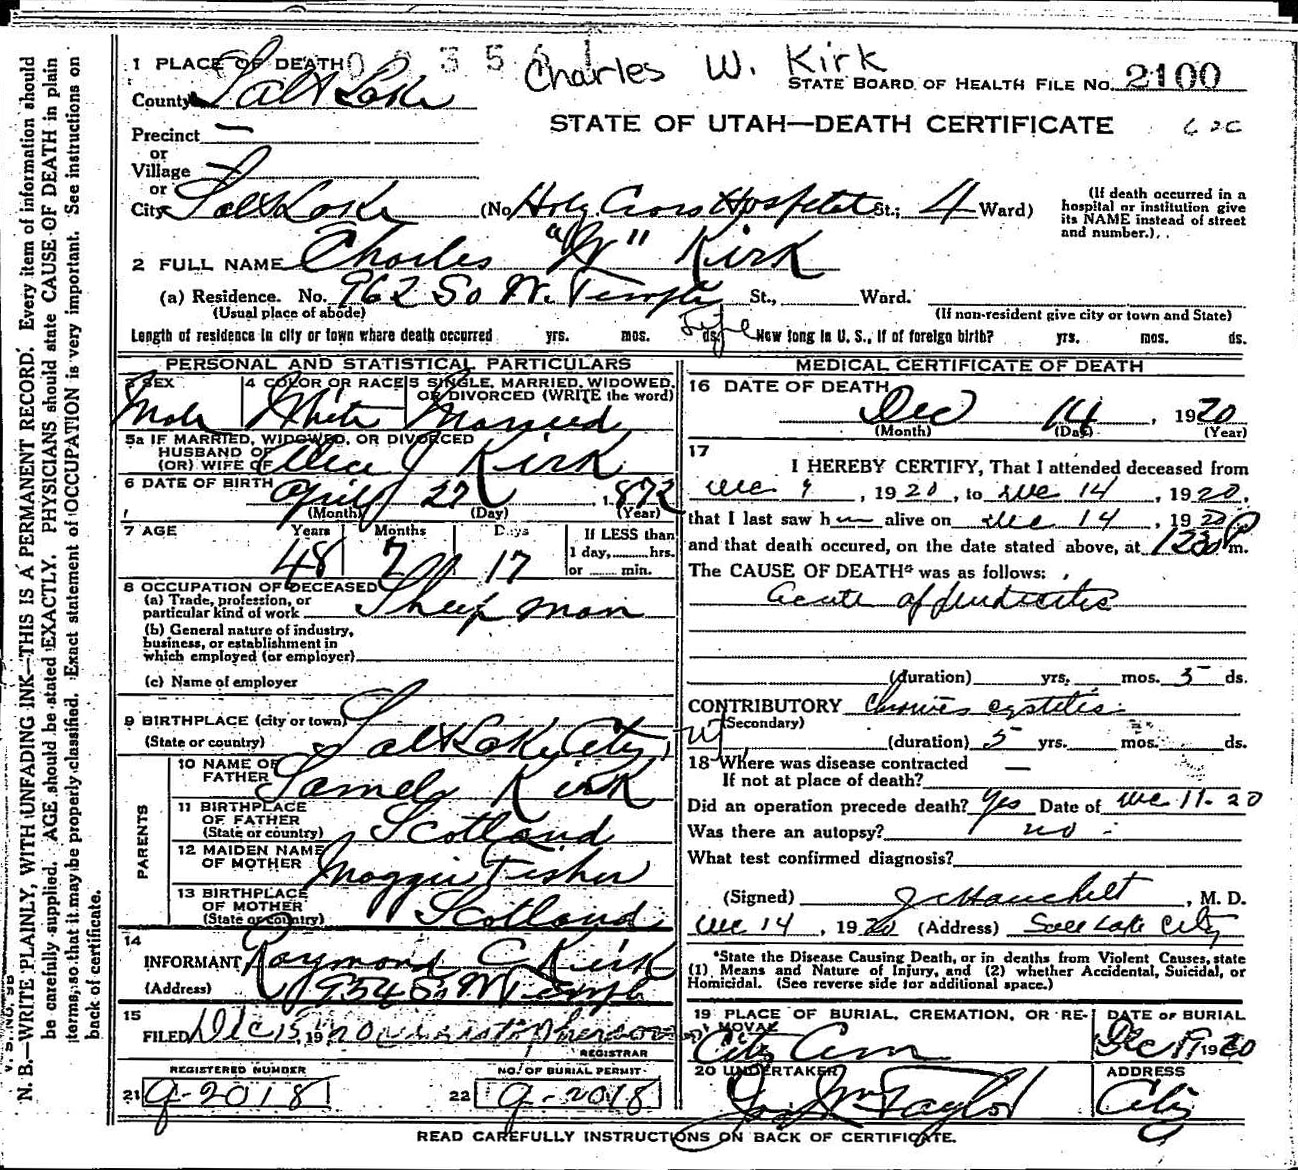 1 PLACE OF DEATH
Charles W. Kirk
STATE BOARD OF HEALTH FILE NO. 2100
County Salt Lake
STATE OF UTAH—DEATH CERTIFICATE
Precinct —
or
Village
or
City Salt Lake (No. Holy Cross Hospital St.; 4 Ward)
(If death occurred in a
hospital or institution give
its NAME instead of street
and number.)
2 FULL NAME Charles "W" Kirk
(a) Residence. No. 962 So W. Temple St., Ward.
(Usual place of abode)
(If non-resident give city or town and State)
Length of residence in city or town where death occurred yrs. mos. ds. Life How long in U. S., if of foreign birth? yrs. mos. ds.
PERSONAL AND STATISTICAL PARTICULARS
3 SEX
Male
4 COLOR OR RACE
White
5 SINGLE, MARRIED, WIDOWED,
OR DIVORCED (WRITE the word)
Married
5a IF MARRIED, WIDOWED, OR DIVORCED
HUSBAND OF
(OR) WIFE OF Alice J Kirk
6 DATE OF BIRTH April 27 1872
(Month) (Day) (Year)
7 AGE
Years Months Days
48 7 17
If LESS than
1 day, hrs.
or min.
8 OCCUPATION OF DECEASED
(a) Trade, profession, or
particular kind of work Sheep man
(b) General nature of industry,
business, or establishment in
which employed (or employer)
(c) Name of employer
9 BIRTHPLACE (city or town)
(State or country) Salt Lake City, Ut
PARENTS
10 NAME OF
FATHER Kirk
11 BIRTHPLACE
OF FATHER
(State or country) Scotland
12 MAIDEN NAME
OF MOTHER Maggie Fisher
13 BIRTHPLACE
OF MOTHER
(State or country) Scotland
14
INFORMANT Raymond C Kirk
(Address) 954 So W Temple
15
FILED Dec 15, 1920
REGISTRAR
REGISTERED NUMBER
21 9-2018
NO. OF BURIAL PERMIT
22 9-2018
MEDICAL CERTIFICATE OF DEATH
16 DATE OF DEATH
Dec 14, 1920
(Month) (Day) (Year)
17
I HEREBY CERTIFY, That I attended deceased from
Dec 9, 1920, to Dec 14, 1920,
that I last saw him alive on Dec 14, 1920
and that death occured, on the date stated above, at 1230 P m.
The CAUSE OF DEATH* was as follows:
Acute appendicitis
(duration) yrs. mos. 5 ds.
CONTRIBUTORY Chronic cystitis
(Secondary)
(duration) 5 yrs. mos. ds.
18 Where was disease contracted
If not at place of death? —
Did an operation precede death? Yes Date of Dec 11-20
Was there an autopsy? no
What test confirmed diagnosis?
(Signed) M. D.
Dec 14, 1920 (Address) Salt Lake City
*State the Disease Causing Death, or in deaths from Violent Causes, state
(1) Means and Nature of Injury, and (2) whether Accidental, Suicidal, or
Homicidal. (See reverse side for additional space.)
19 PLACE OF BURIAL, CREMATION, OR RE-
MOVAL
City Cem
DATE OF BURIAL
Dec 1920
20 UNDERTAKER
Jos Wm Taylor
ADDRESS
City
READ CAREFULLY INSTRUCTIONS ON BACK OF CERTIFICATE.
N. B.—WRITE PLAINLY, WITH UNFADING INK—THIS IS A PERMANENT RECORD. Every item of information should
be carefully supplied. AGE should be stated EXACTLY. PHYSICIANS should state CAUSE OF DEATH in plain
terms, so that it may be properly classified. Exact statement of OCCUPATION is very important. See instructions on
back of certificate.